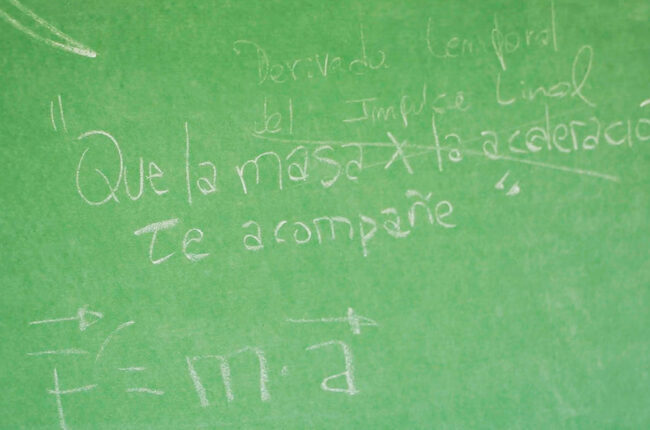 Derivada temporal
del Impulso Lineal
"Que la masa x la aceleració
Te acompañe"
F = m · a